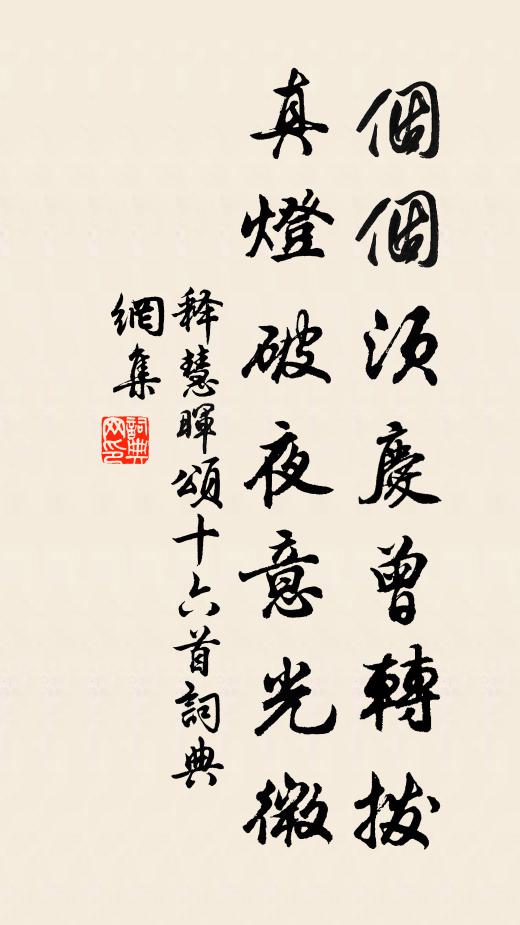 個個須慶曾轉撥
真燈破夜意光微
釋慧暉頌十六首詞典
網集
詞典
网印